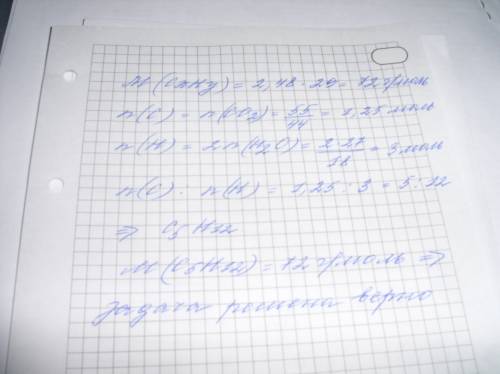 M(CxHy) = 2,48 · 29 = 72 г/моль
n(C) = n(CO₂) = 55/44 = 1,25 моль
n(H) = 2n(H₂O) = 2·27/18 = 3 моль
n(C) : n(H) = 1,25 : 3 = 5 : 12
⇒ C₅H₁₂
M(C₅H₁₂) = 72 г/моль ⇒
задача решена верно